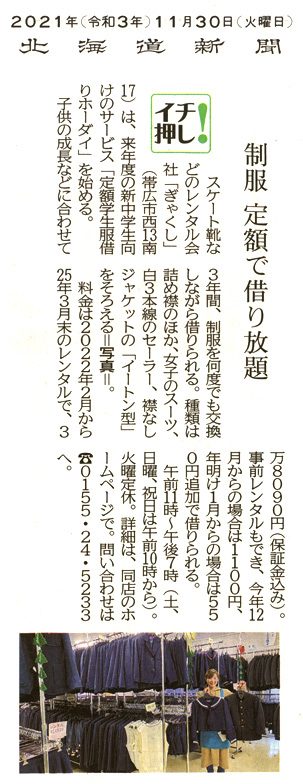 2021年(令和3年)11月30日(火曜日)
北海道新聞
制服 定額で借り放題
イチ押し!
スケート靴な
どのレンタル会
社「ぎゃくし」
(帯広市西13南
17)は、来年度の新中学生向
けのサービス「定額学生服借
りホーダイ」を始める。
子供の成長などに合わせて
3年間、制服を何度でも交換
しながら借りられる。種類は
詰め襟のほか、女子のスーツ、
白3本線のセーラー、襟なし
ジャケットの「イートン型」
をそろえる=写真=。
料金は2022年2月から
25年3月末のレンタルで、3
万8090円(保証金込み)。
事前レンタルもでき、今年12
月からの場合は1100円、
年明け1月からの場合は55
0円追加で借りられる。
午前11時~午後7時(土、
日曜、祝日は午前10時から)。
火曜定休。詳細は、同店のホ
ームページで。問い合わせは
☎0155・24・5233
へ。